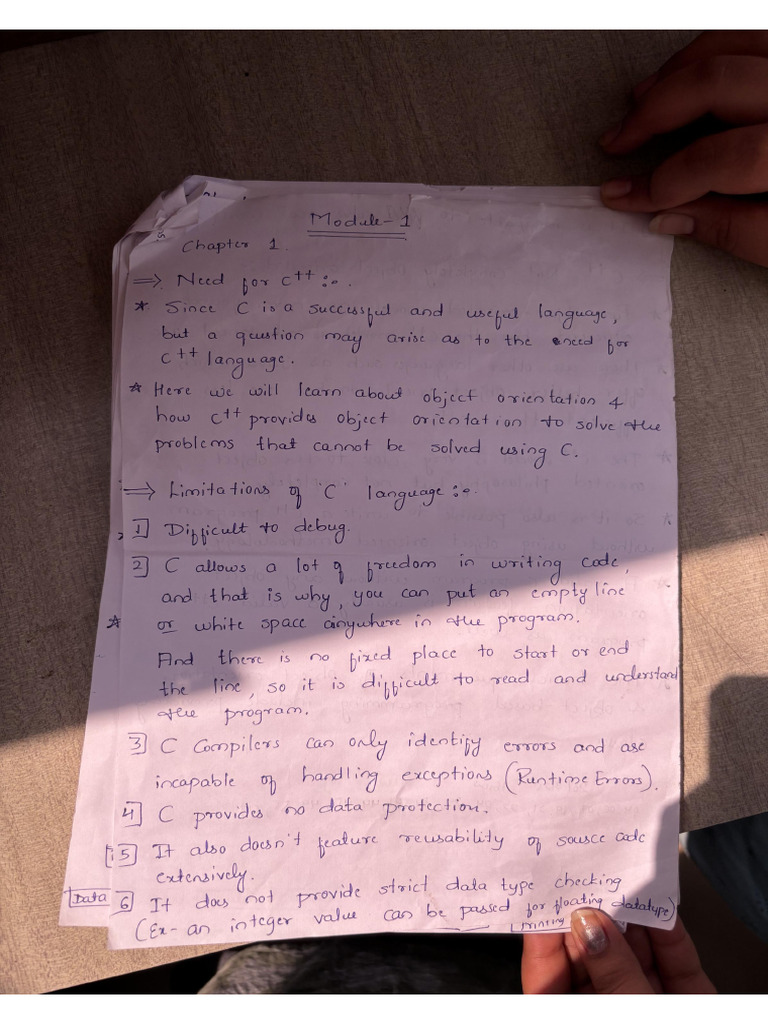 Module-1
Chapter 1.
⇒ Need for C++ :-.
* Since C is a successful and useful language,
but a qeustion may arise as to the need for
C++ language.
* Here we will learn about object orientation &
how C++ provides object orientation to solve the
problems that cannot be solved using C.
⇒ Limitations of 'C' language :-.
1] Difficult to debug.
2] C allows a lot of freedom in writing code,
and that is why, you can put an empty line
* or white space anywhere in the program.
And there is no fixed place to start or end
the line, so it is difficult to read and understand
the program.
3] C Compilers can only identify errors and are
incapable of handling exceptions (Runtime Errors).
4] C provides no data protection.
5] It also doesn't feature reusability of source code
extensively.
Data
6] It does not provide strict data type checking
(Ex- an integer value can be passed for floating datatype)
printing